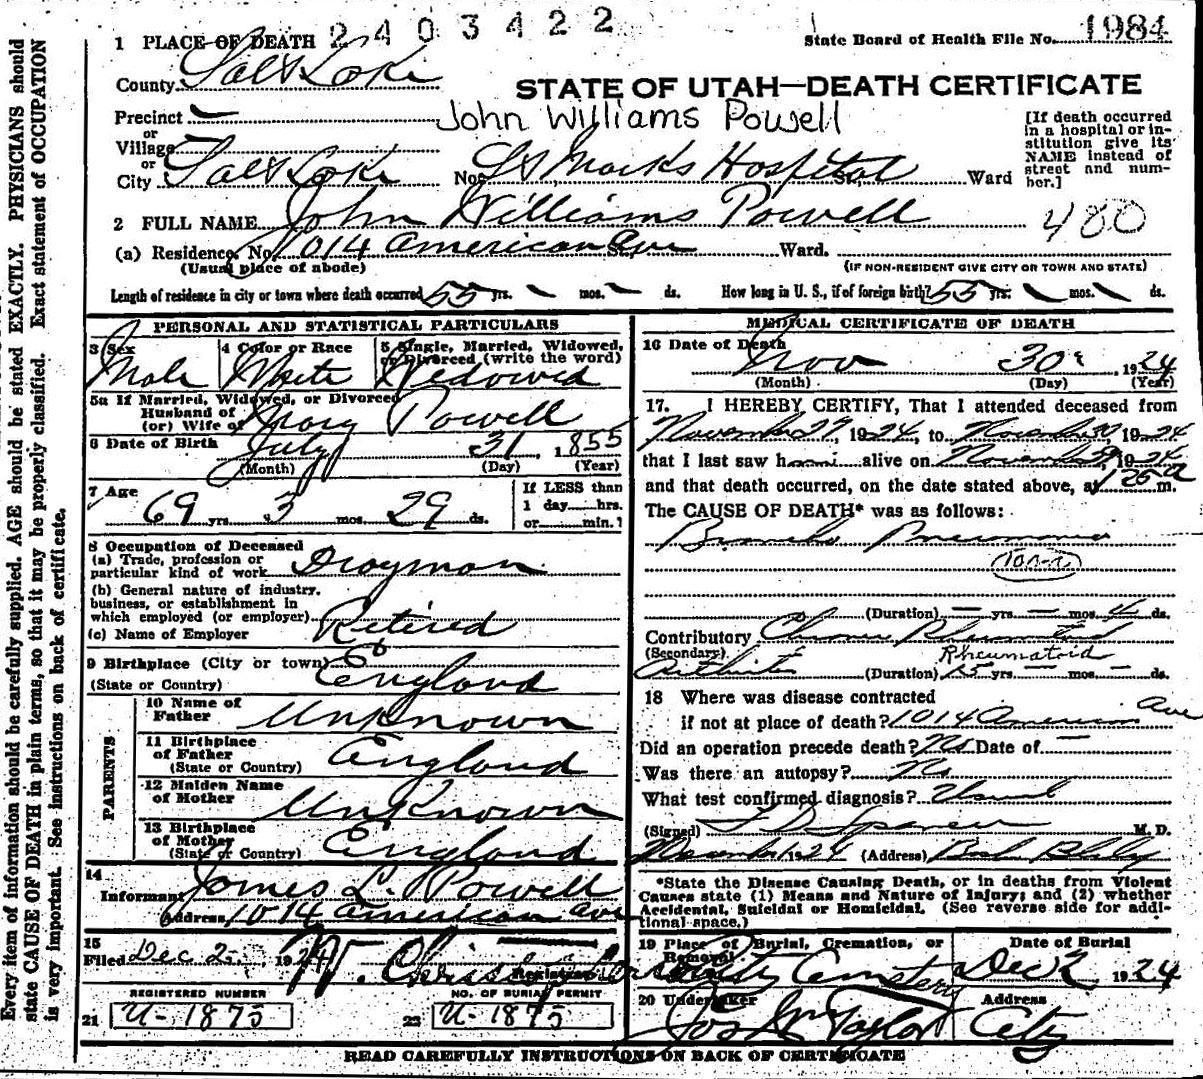 2403422
State Board of Health File No. 1984
1 PLACE OF DEATH
County Salt Lake
STATE OF UTAH—DEATH CERTIFICATE
Precinct
John Williams Powell
or
Village
or
City Salt Lake No. St Marks Hospital St., Ward
[If death occurred
in a hospital or in-
stitution give its
NAME instead of
street and num-
ber.]
2 FULL NAME John Williams Powell
480
(a) Residence, No. 1014 American Ave St., Ward.
(Usual place of abode)
(IF NON-RESIDENT GIVE CITY OR TOWN AND STATE)
Length of residence in city or town where death occurred 55 yrs. - mos. - ds. How long in U. S., if of foreign birth? 55 yrs. - mos. - ds.
PERSONAL AND STATISTICAL PARTICULARS
3 Sex
Male
4 Color or Race
White
5 Single, Married, Widowed,
or Divorced (write the word)
Widowed
5a If Married, Widowed, or Divorced
Husband of
(or) Wife of Mary Powell
6 Date of Birth July 31, 1855
(Month) (Day) (Year)
7 Age
69 yrs. 3 mos. 29 ds.
If LESS than
1 day hrs.
or min. ?
8 Occupation of Deceased
(a) Trade, profession or
particular kind of work Drayman
(b) General nature of industry,
business, or establishment in
which employed (or employer)
Retired
(c) Name of Employer
9 Birthplace (City or town)
(State or Country) England
PARENTS
10 Name of
Father Unknown
11 Birthplace
of Father England
(State or Country)
12 Maiden Name
of Mother Unknown
13 Birthplace
of Mother England
(State or Country)
14
Informant James L. Powell
Address 1014 American Ave
15
Filed Dec 2, 1924 W. Christopherson
Registrar
REGISTERED NUMBER
21 U-1875
NO. OF BURIAL PERMIT
22 U-1875
MEDICAL CERTIFICATE OF DEATH
16 Date of Death
Nov 30, 1924
(Month) (Day) (Year)
17. I HEREBY CERTIFY, That I attended deceased from
November 27, 1924, to November 30, 1924
that I last saw him alive on November 29, 1924
and that death occurred, on the date stated above, at 1 25 a m.
The CAUSE OF DEATH* was as follows:
Broncho Pneumonia
(Duration) - yrs. - mos. 4 ds.
Contributory Chronic Rheumatoid
(Secondary) Rheumatoid
Arthritis (Duration) 15 yrs. - mos. - ds.
18 Where was disease contracted
if not at place of death? 1014 American Ave
Did an operation precede death? No Date of -
Was there an autopsy? No
What test confirmed diagnosis? Usual
(Signed) M. D.
1924 (Address)
*State the Disease Causing Death, or in deaths from Violent
Causes state (1) Means and Nature of Injury; and (2) whether
Accidental, Suicidal or Homicidal. (See reverse side for addi-
tional space.)
19 Place of Burial, Cremation, or
Removal
City Cemetery
Date of Burial
Dec 2 1924
20 Undertaker
Jos Wm Taylor
Address
City
READ CAREFULLY INSTRUCTIONS ON BACK OF CERTIFICATE
Every item of information should be carefully supplied. AGE should be stated EXACTLY. PHYSICIANS should
state CAUSE OF DEATH in plain terms, so that it may be properly classified. Exact statement of OCCUPATION
is very important. See instructions on back of certificate.